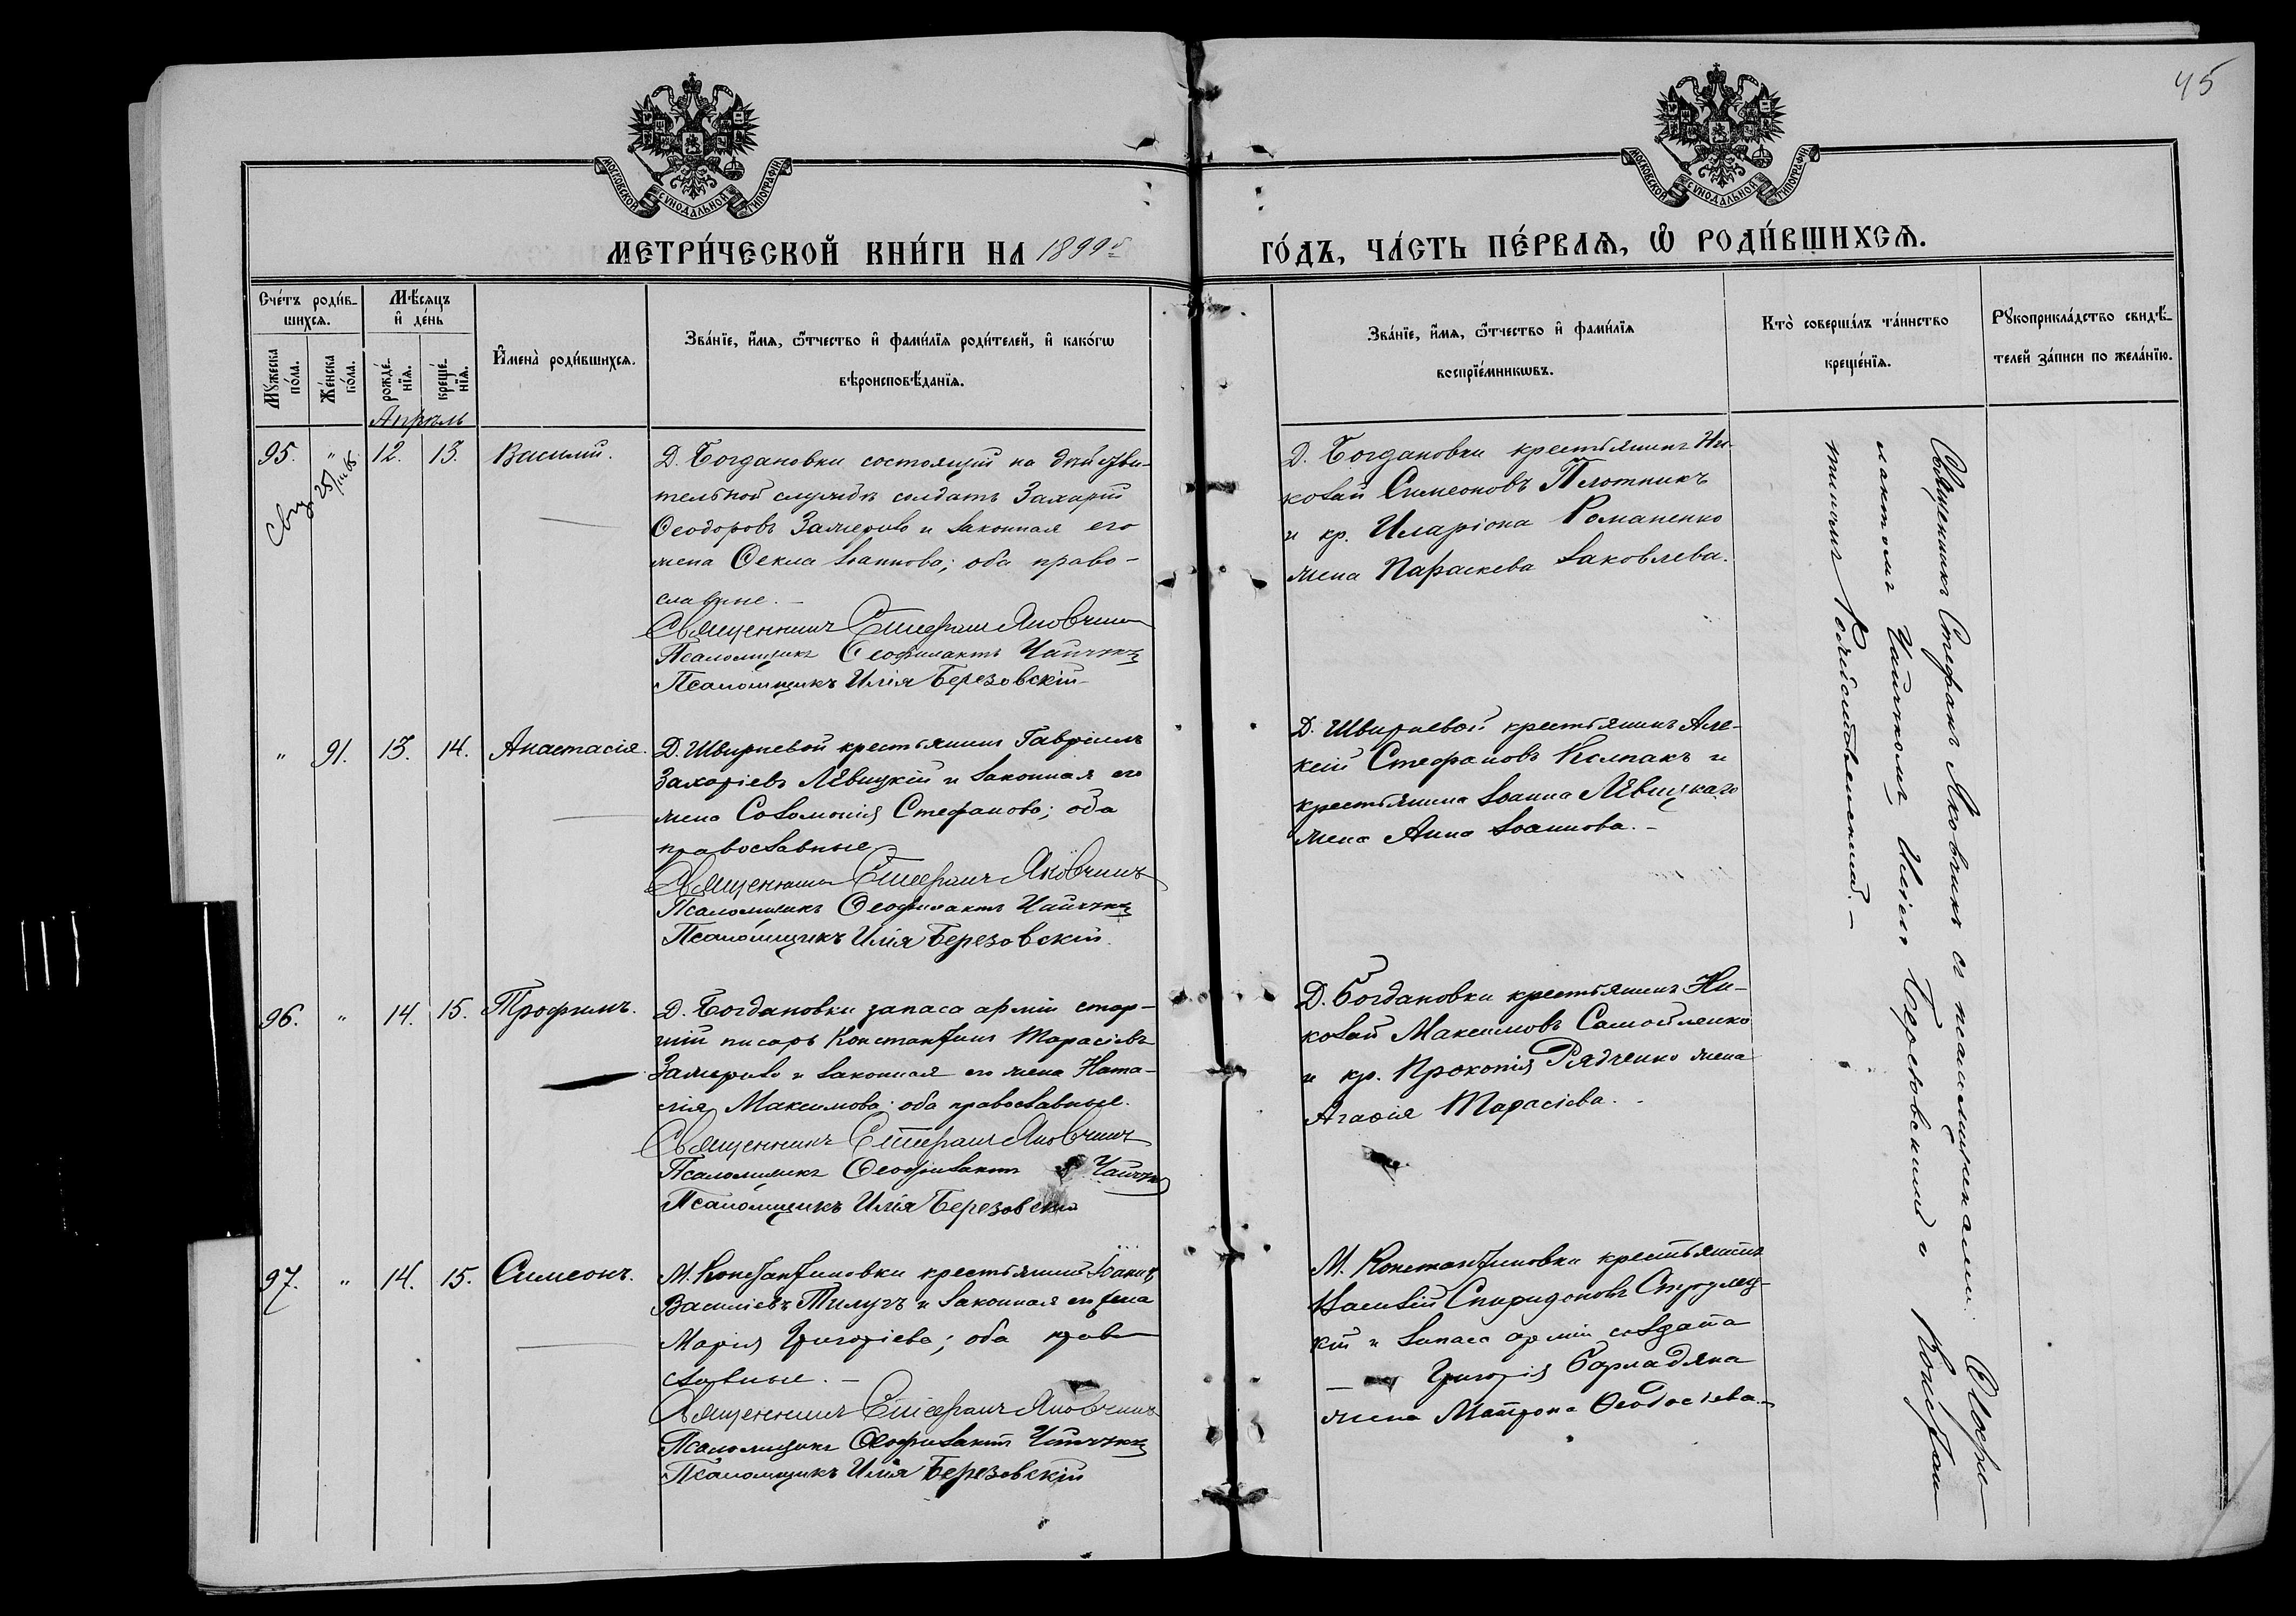 45
МОСКОВСКОЙ СУНОДАЛЬНОЙ ТИПОГРАФІИ
МОСКОВСКОЙ СУНОДАЛЬНОЙ ТИПОГРАФІИ
МЕТРИ́ЧЕСКОЙ КНИ́ГИ НА 1899й
ГО́ДЪ, ЧА́СТЬ ПЕ́РВАЯ, Ѿ РОДИ́ВШИХСЯ.
Сче́тъ роди́в-
шихся.
Мꙋжеска
по́ла.
Же́нска
по́ла.
Мѣ́сяцъ
и де́нь
рожде́-
нїя.
креще́-
нїя.
Имена̀ роди́вшихся.
Зва́нїе, и́мя, ѻ́тчество и фами́лїя роди́телей, и како́гѡ
вѣроисповѣ́данїя.
Зва́нїе, и́мя, ѻ́тчество и фами́лїя
воспрїе́мникѡвъ.
Кто̀ соверша́лъ та́инство
креще́нїя.
Рꙋкоприкла́дство свидѣ́-
телей за́писи по жела́нїю.
Апрѣль
95. " 12. 13. Василій.
Д. Богдановки состоящій на дѣйстви-
тельной службѣ солдатъ Захарій
Ѳеодоровъ и законная его
жена Ѳекла Іоаннова; оба право-
славные. –
Священникъ Стефанъ Яковчикъ
Псаломщикъ Ѳеофилактъ Чайчукъ
Псаломщикъ Илія Березовскій
Д. Богдановки крестьянинъ Ни-
колай Симеоновъ Плотникъ
и кр. Иларіона Романенко
жена Параскева Іаковлева.
" 91. 13. 14. Анастасія.
Д. Швырневой крестьянинъ Гавріилъ
Захаріевъ Лѣвицкій и законная его
жена Соломонія Стефанова; оба
православные
Священникъ Стефанъ Яковчикъ
Псаломщикъ Ѳеофилактъ Чайчукъ
Псаломщикъ Илія Березовскій.
Д. Швырневой крестьянинъ Але-
ксій Стефановъ Колпакъ и
крестьянина Іоанна Лѣвицкаго
жена Анна Іоаннова. –
96. " 14. 15. Трофимъ.
Д. Богдановки запаса арміи стар-
шій писарь Константинъ Тарасіевъ
и законная его жена Ната-
лія Максимова; оба православные.
Священникъ Стефанъ Яковчикъ
Псаломщикъ Ѳеофилактъ Чайчукъ
Псаломщикъ Илія Березовскій
Д. Богдановки крестьянинъ Ни-
колай Максимовъ Самойленко
и кр. Прокопія Рядченко жена
Агаѳія Тарасіева.
97. " 14. 15. Симеонъ.
М. Константиновки крестьянинъ Іоаннъ
Василіевъ и законная его жена
Марія Григоріева; оба право
славные. –
Священникъ Стефанъ Яковчикъ
Псаломщикъ Ѳеофилактъ Чайчукъ
Псаломщикъ Илія Березовскій
М. Константиновки крестьянинъ
Василій Спиридоновъ
и запаса арміи солдата
Григорія Барладяна
жена Матрона Ѳеодосіева.
Священникъ Стефанъ Яковчикъ съ псаломщиками: Ѳеофи-
лактомъ Чайчукомъ, Иліею Березовскимъ и Констан-
тиномъ